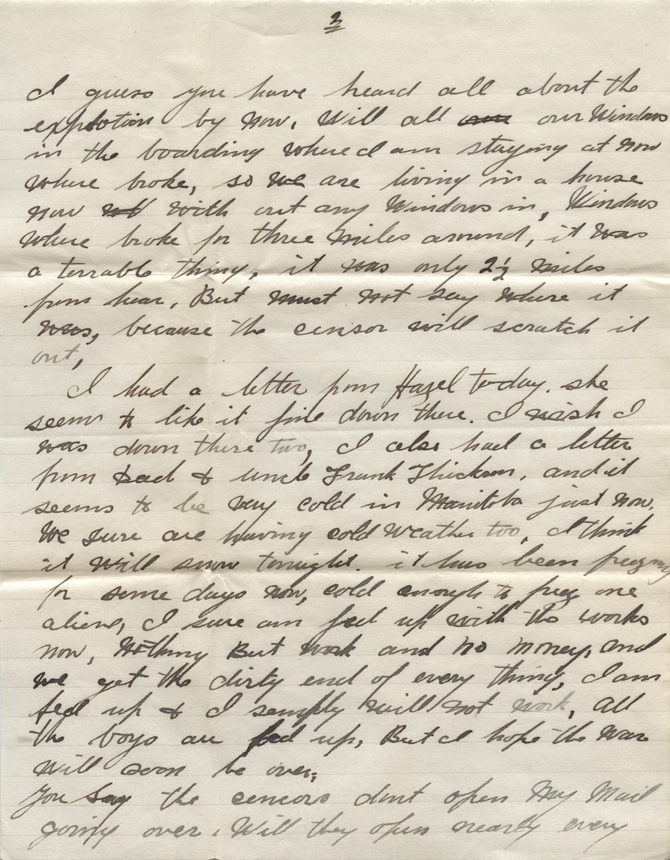 3
I guess you have heard all about the
explotion by now, Will all our Windows
in the boarding where I am staying at now
where broke, so we are living in a house
now with out any Windows in, Windows
where broke for three miles around, it was
a terrable thing, it was only 2½ miles
from hear, But must not say where it
was, because the censor will scratch it
out,
I had a letter from Hazel today. she
seems to like it fine down there. I wish I
was down there two, I also had a letter
from Dad & uncle Frank and it
seems to be very cold in Manitoba just now.
We sure are having cold Weather too, I think
it will snow tonight. it has been
for some days now, cold enough to one
alieve, I sure am fed up with the works
now, Nothing But work and no money, and
we get the dirty end of every thing, I am
fed up & I semply will not work, All
the boys are fed up, But I hope the war
will soon be over,
You say the cencors dont open My Mail
going over. Will they open nearly every